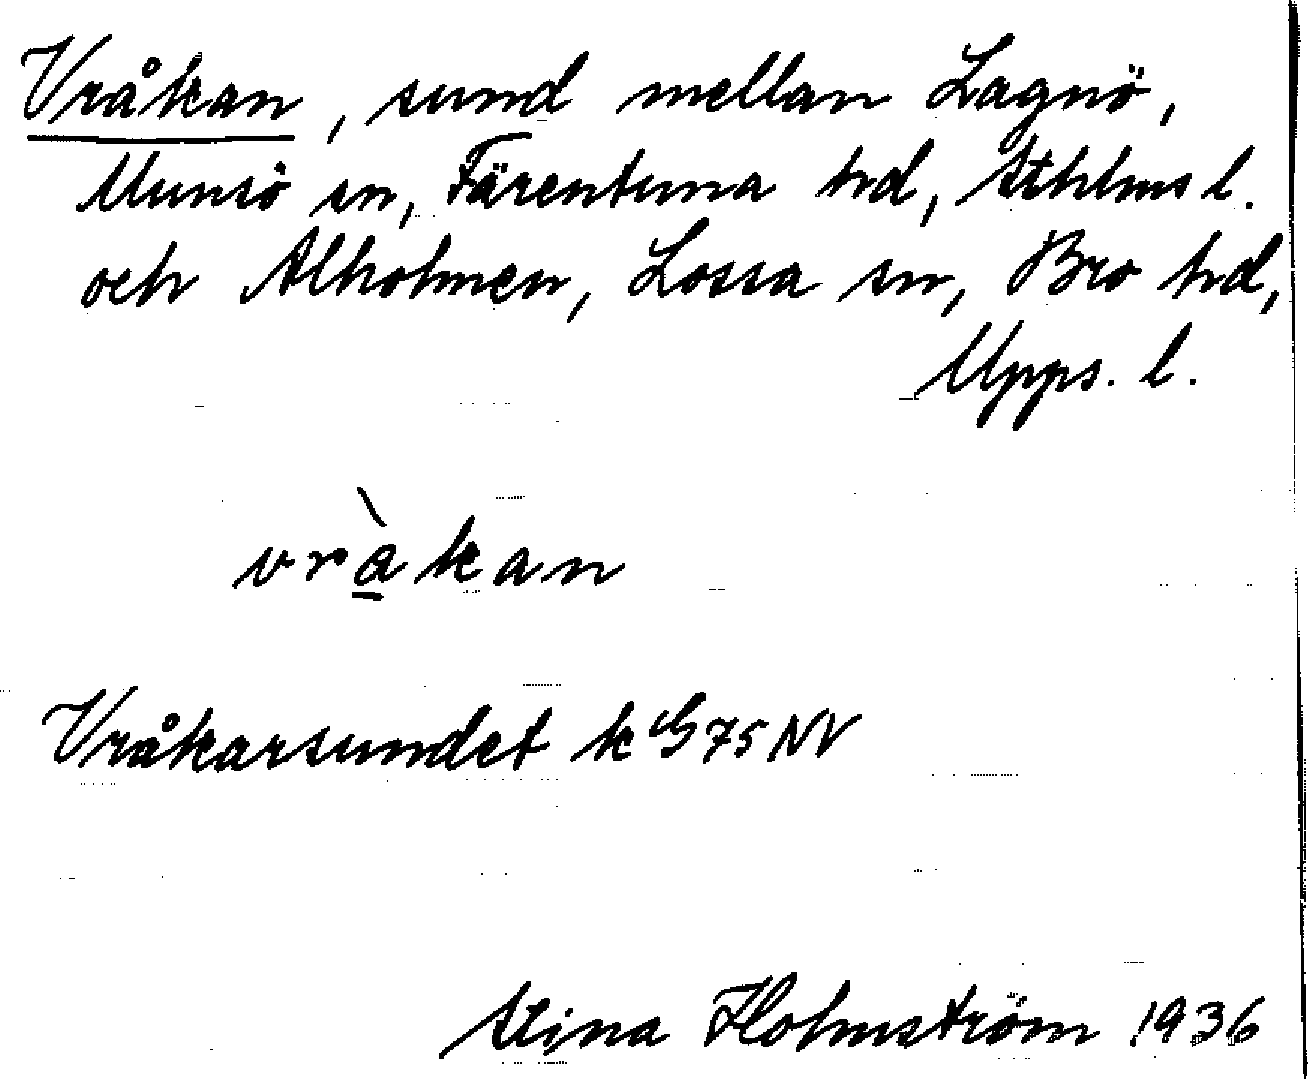 Vråkan, sund mellan Lagnö,
Munsö sn, Färentuna hd, Sthlms l.
och Alholmen, Lossa sn, Bro hd,
Upps. l.
vràkan
Vråkarsundet k G 75 NV
Stina Holmström 1936